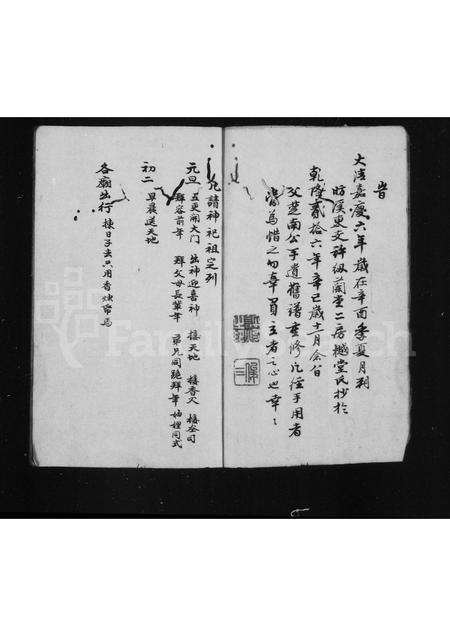 旹
大清嘉慶六年歲在辛酉季夏月朔
昉溪東支許紉蘭堂二房樾堂氏抄於
乾隆貳拾六年辛巳歲十一月余曾
父楚南公手遺舊譜重修凡經手用者
當爲惜之勿辜買主者之心也幸〻
凡請神祀祖定列
元旦 五更開大門 出神迎喜神 接天地 接香火 接灶司
拜谷前年 拜父母長輩年 弟兄同跪拜年 妯娌同式
初二 早晨送天地
各廟出行 揀日子去只用香燭帋馬
FamilySearch